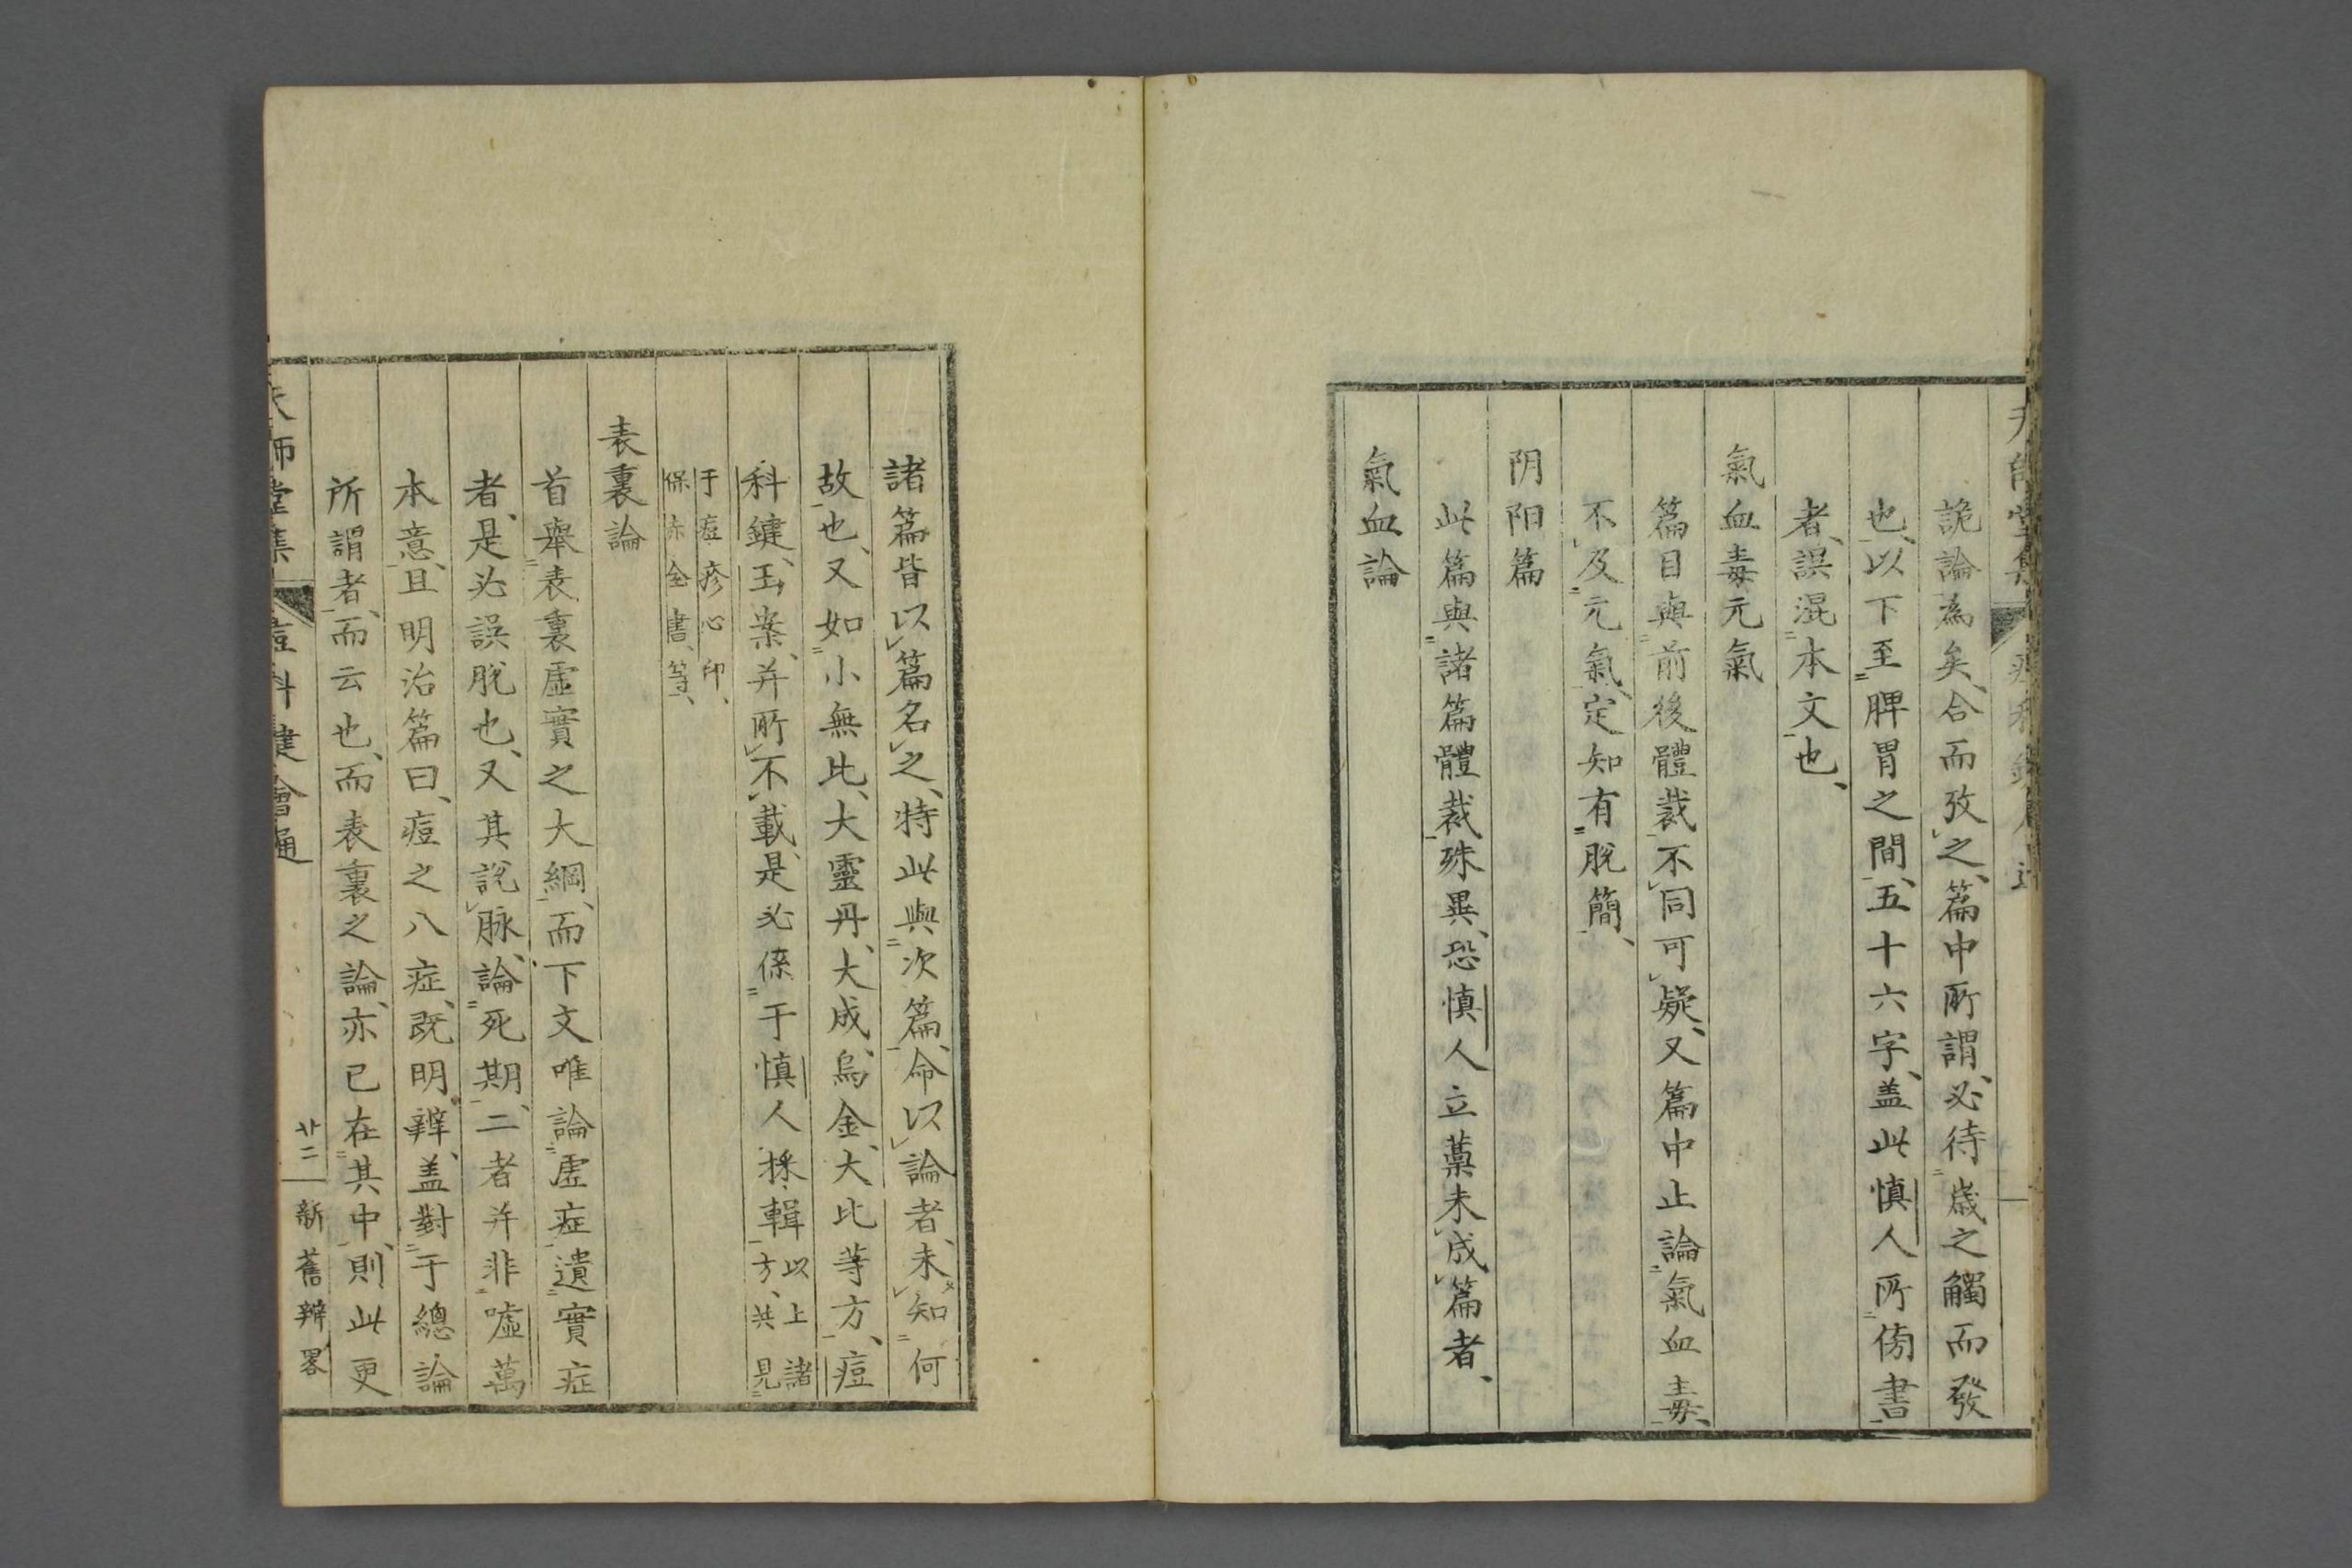 詭論為矣、合而攷之、篇中所謂、必待歳之觸而發
也、以下至脾胃之間、五十六字、盖此慎人所傍書
者、誤混本文也、
氣血毒元氣
篇目與前後體裁不同可疑、又篇中止論氣血毒、
不及元氣、定知有脫簡、
阴阳篇
此篇與諸篇體裁殊異、恐慎人立藁未成篇者、
氣血論
諸篇皆以篇名之、特此與次篇、命以論者、未知何
故也、又如小無比、大靈丹、大成、烏金、大比等方、痘
科鍵、玉案、并所不載、是必係于慎人採輯以上諸方、共見
于痘疹心印、保赤全書、等、
表裏論
首舉表裏虛實之大綱、而下文唯論虛症遺實症
者、是必誤脫也、又其說脉、論死期、二者并非嘘萬
本意、且明治篇曰、痘之八症、既明辨、盖對于總論
所謂者、而云也、而表裏之論、亦已在其中、則此更
天師堂集 痘科鍵會通 廿二 新舊辨畧